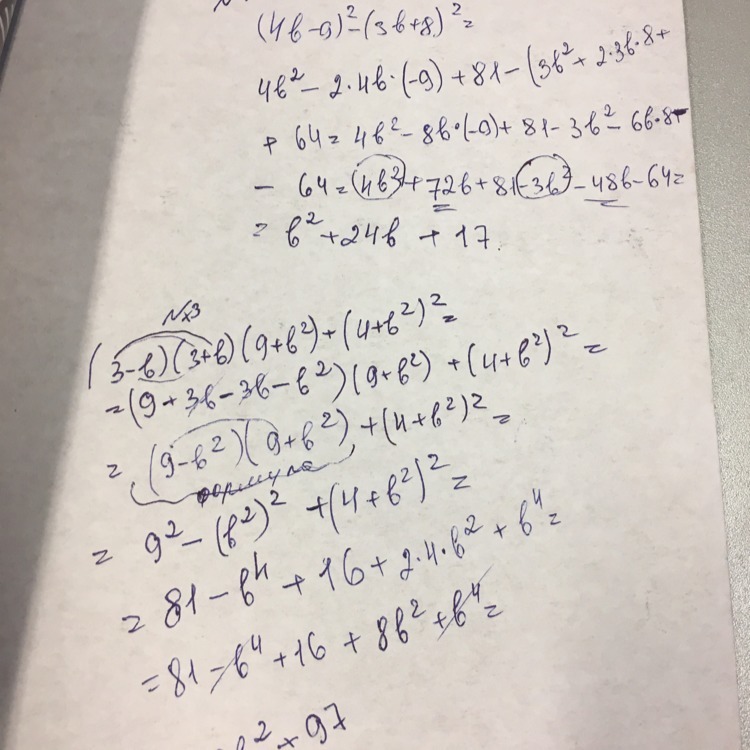 (4b-9)²-(3b+8)²=
4b²-2·4b·(-9)+81-(3b²+2·3b·8+
+ 64=4b²-8b·(-9)+81-3b²-6b·8-
- 64=(4b²)+72b+81-3b²-48b-64=
= b²+24b+17.
№3
(3-b)(3+b)(9+b²)+(4+b²)²=
=(9+3b-3b-b²)(9+b²)+(4+b²)²=
= (9-b²)(9+b²)+(4+b²)²=
формула
= 9²-(b²)²+(4+b²)²=
= 81-b⁴+16+2·4·b²+b⁴=
=81-b⁴+16+8b²+b⁴=
b²+97